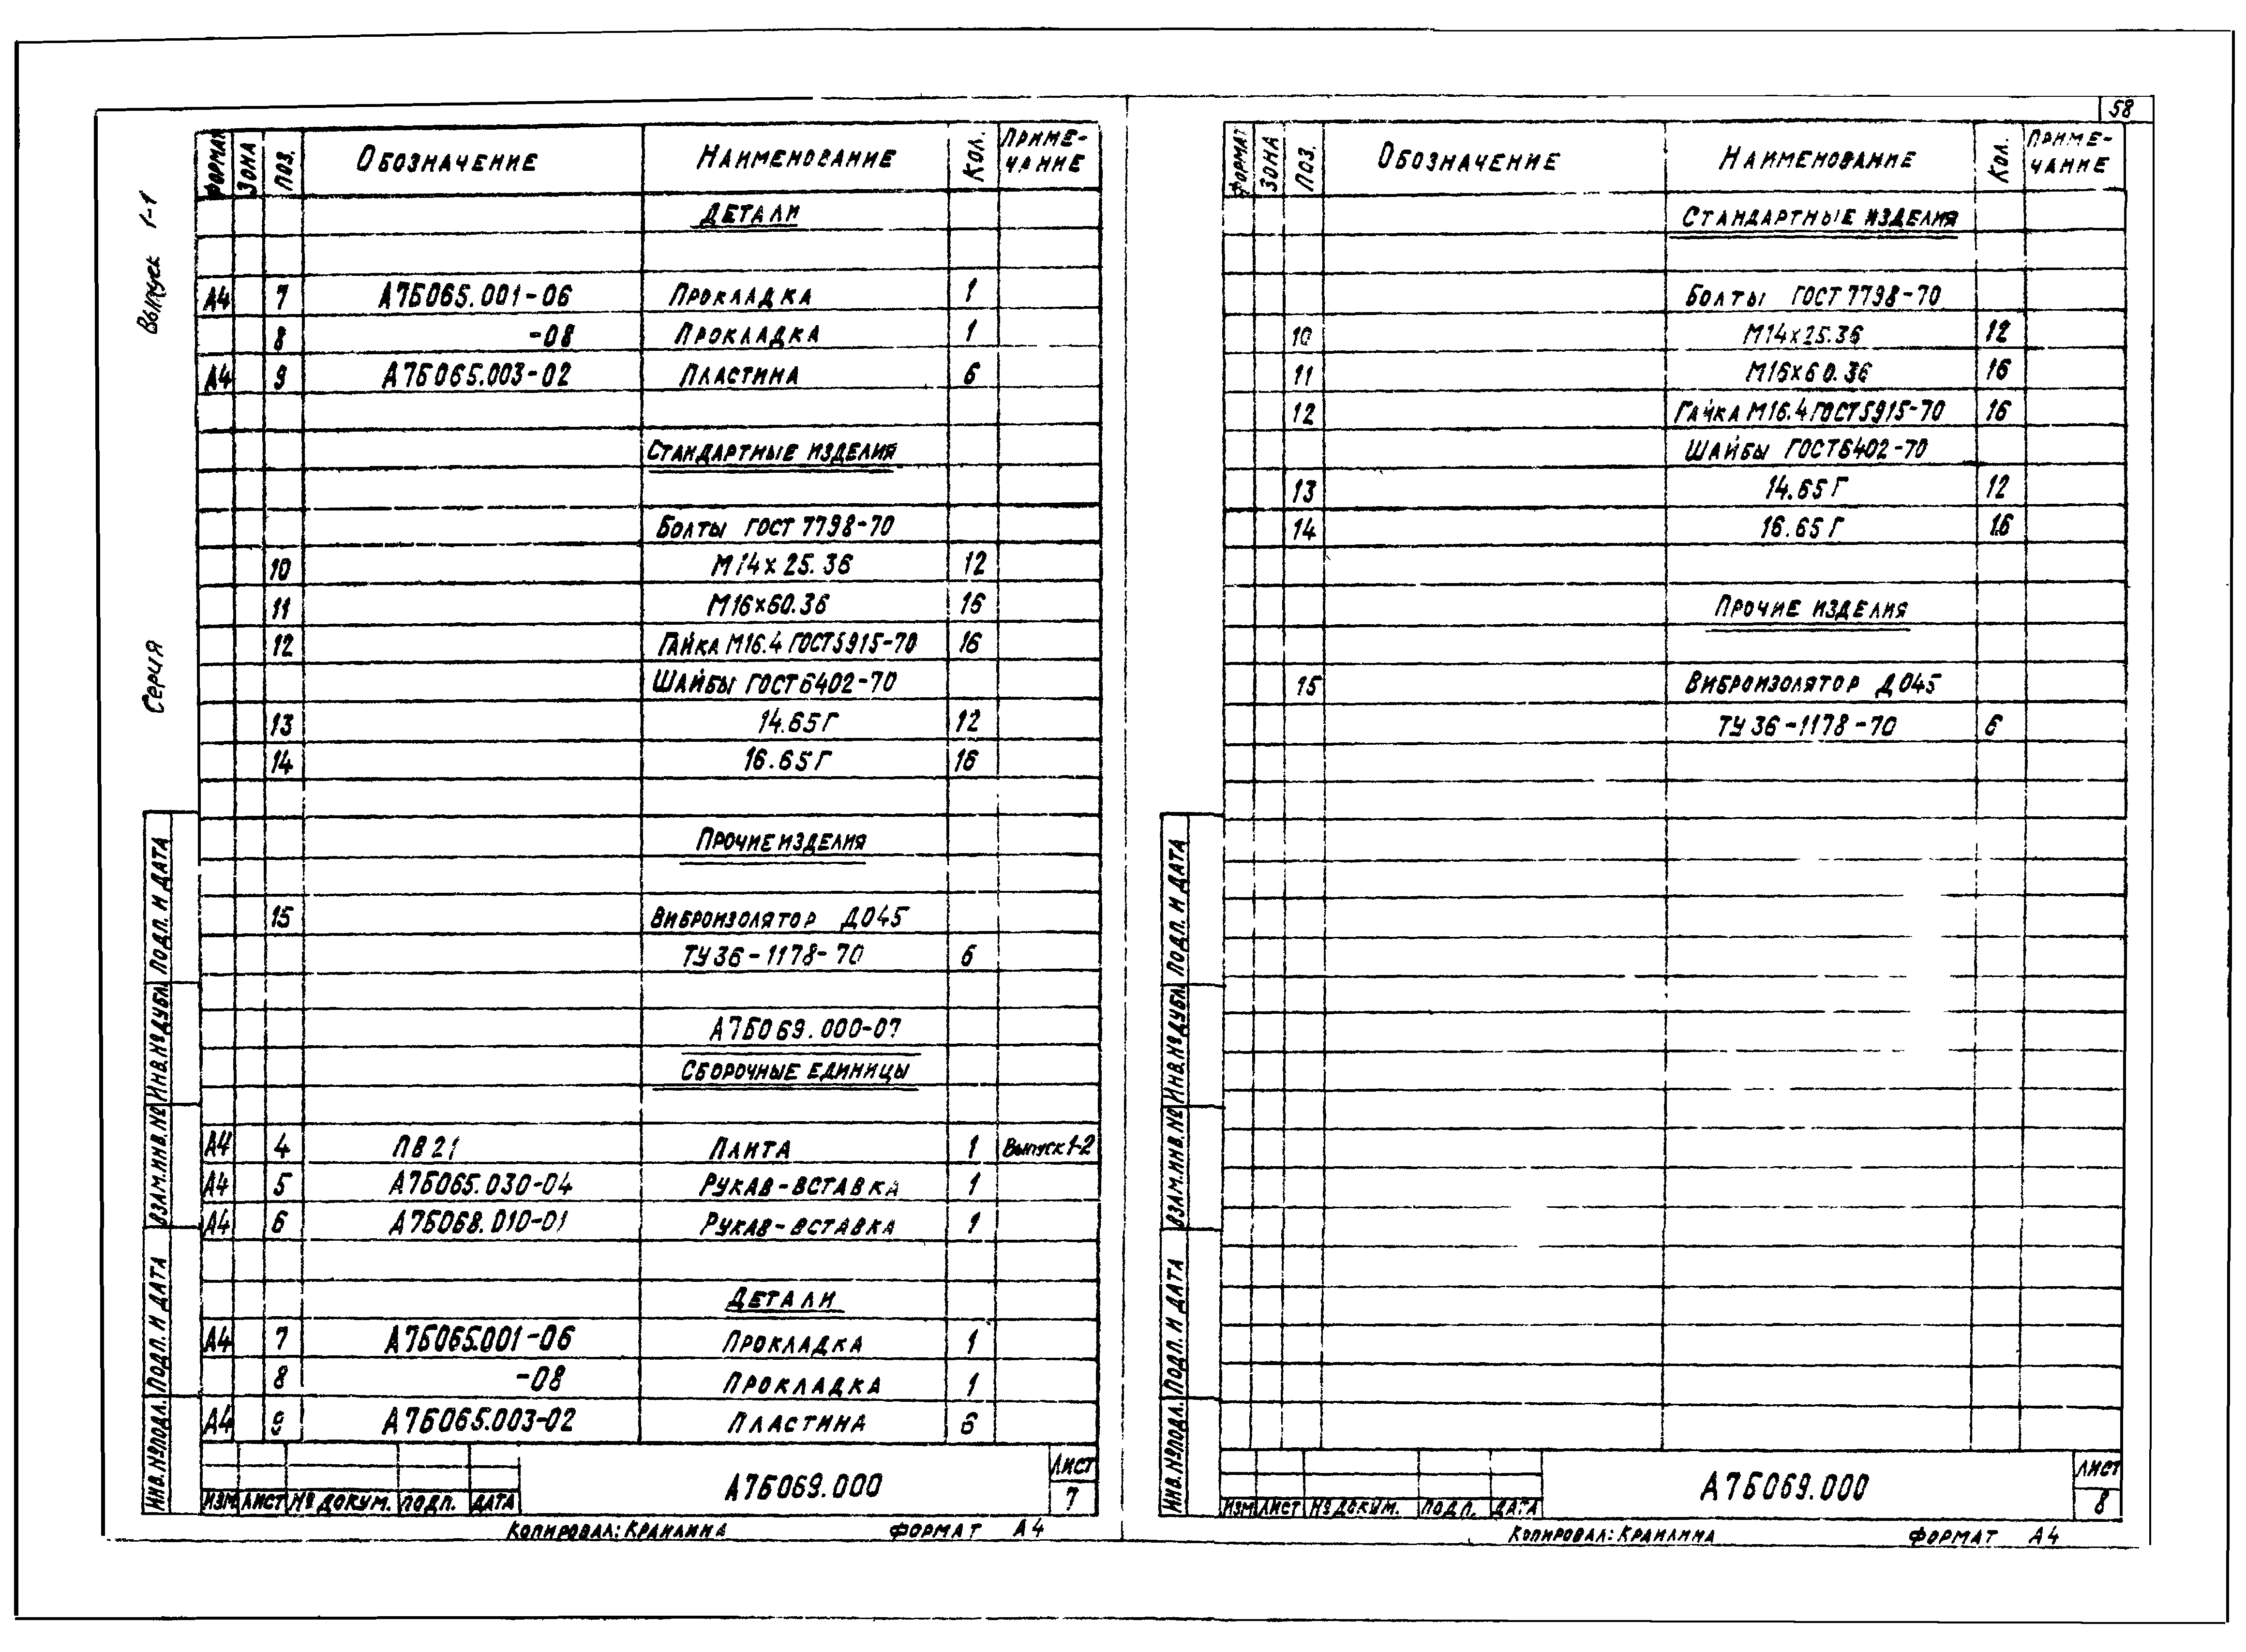 58
Выпуск 1-1
Серия
ФОРМАТ ЗОНА ПОЗ. ОБОЗНАЧЕНИЕ НАИМЕНОВАНИЕ КОЛ. ПРИМЕ-
ЧАНИЕ
ДЕТАЛИ
А4 7 А7Б065.001-06 ПРОКЛАДКА 1
8 -08 ПРОКЛАДКА 1
А4 9 А7Б065.003-02 ПЛАСТИНА 6
СТАНДАРТНЫЕ ИЗДЕЛИЯ
БОЛТЫ ГОСТ 7798-70
10 М14х25.36 12
11 М16х60.36 16
12 ГАЙКА М16.4 ГОСТ5915-70 16
ШАЙБЫ ГОСТ6402-70
13 14.65Г 12
14 16.65Г 16
ПРОЧИЕ ИЗДЕЛИЯ
15 ВИБРОИЗОЛЯТОР ДО45
ТУ36-1178-70 6
А7Б069.000-07
СБОРОЧНЫЕ ЕДИНИЦЫ
А4 4 ПВ21 ПЛИТА 1 Выпуск 1-2
А4 5 А7Б065.030-04 РУКАВ-ВСТАВКА 1
А4 6 А7Б068.010-01 РУКАВ-ВСТАВКА 1
ДЕТАЛИ
А4 7 А7Б065.001-06 ПРОКЛАДКА 1
8 -08 ПРОКЛАДКА 1
А4 9 А7Б065.003-02 ПЛАСТИНА 6
ИНВ.№ПОДЛ. ПОДП. И ДАТА ВЗАМ.ИНВ.№ ИНВ.№ДУБЛ. ПОДП. И ДАТА
ИЗМ ЛИСТ № ДОКУМ. ПОДП. ДАТА
А7Б069.000
ЛИСТ
7
КОПИРОВАЛ: КРАИЛИНА ФОРМАТ А4
ФОРМАТ ЗОНА ПОЗ. ОБОЗНАЧЕНИЕ НАИМЕНОВАНИЕ КОЛ. ПРИМЕ-
ЧАНИЕ
СТАНДАРТНЫЕ ИЗДЕЛИЯ
БОЛТЫ ГОСТ 7798-70
10 М14х25.36 12
11 М16х60.36 16
12 ГАЙКА М16.4 ГОСТ5915-70 16
ШАЙБЫ ГОСТ6402-70
13 14.65Г 12
14 16.65Г 16
ПРОЧИЕ ИЗДЕЛИЯ
15 ВИБРОИЗОЛЯТОР ДО45
ТУ36-1178-70 6
ИНВ.№ПОДЛ. ПОДП. И ДАТА ВЗАМ.ИНВ.№ ИНВ.№ДУБЛ. ПОДП. И ДАТА
ИЗМ ЛИСТ № ДОКУМ. ПОДП. ДАТА
А7Б069.000
ЛИСТ
8
КОПИРОВАЛ: КРАИЛИНА ФОРМАТ А4